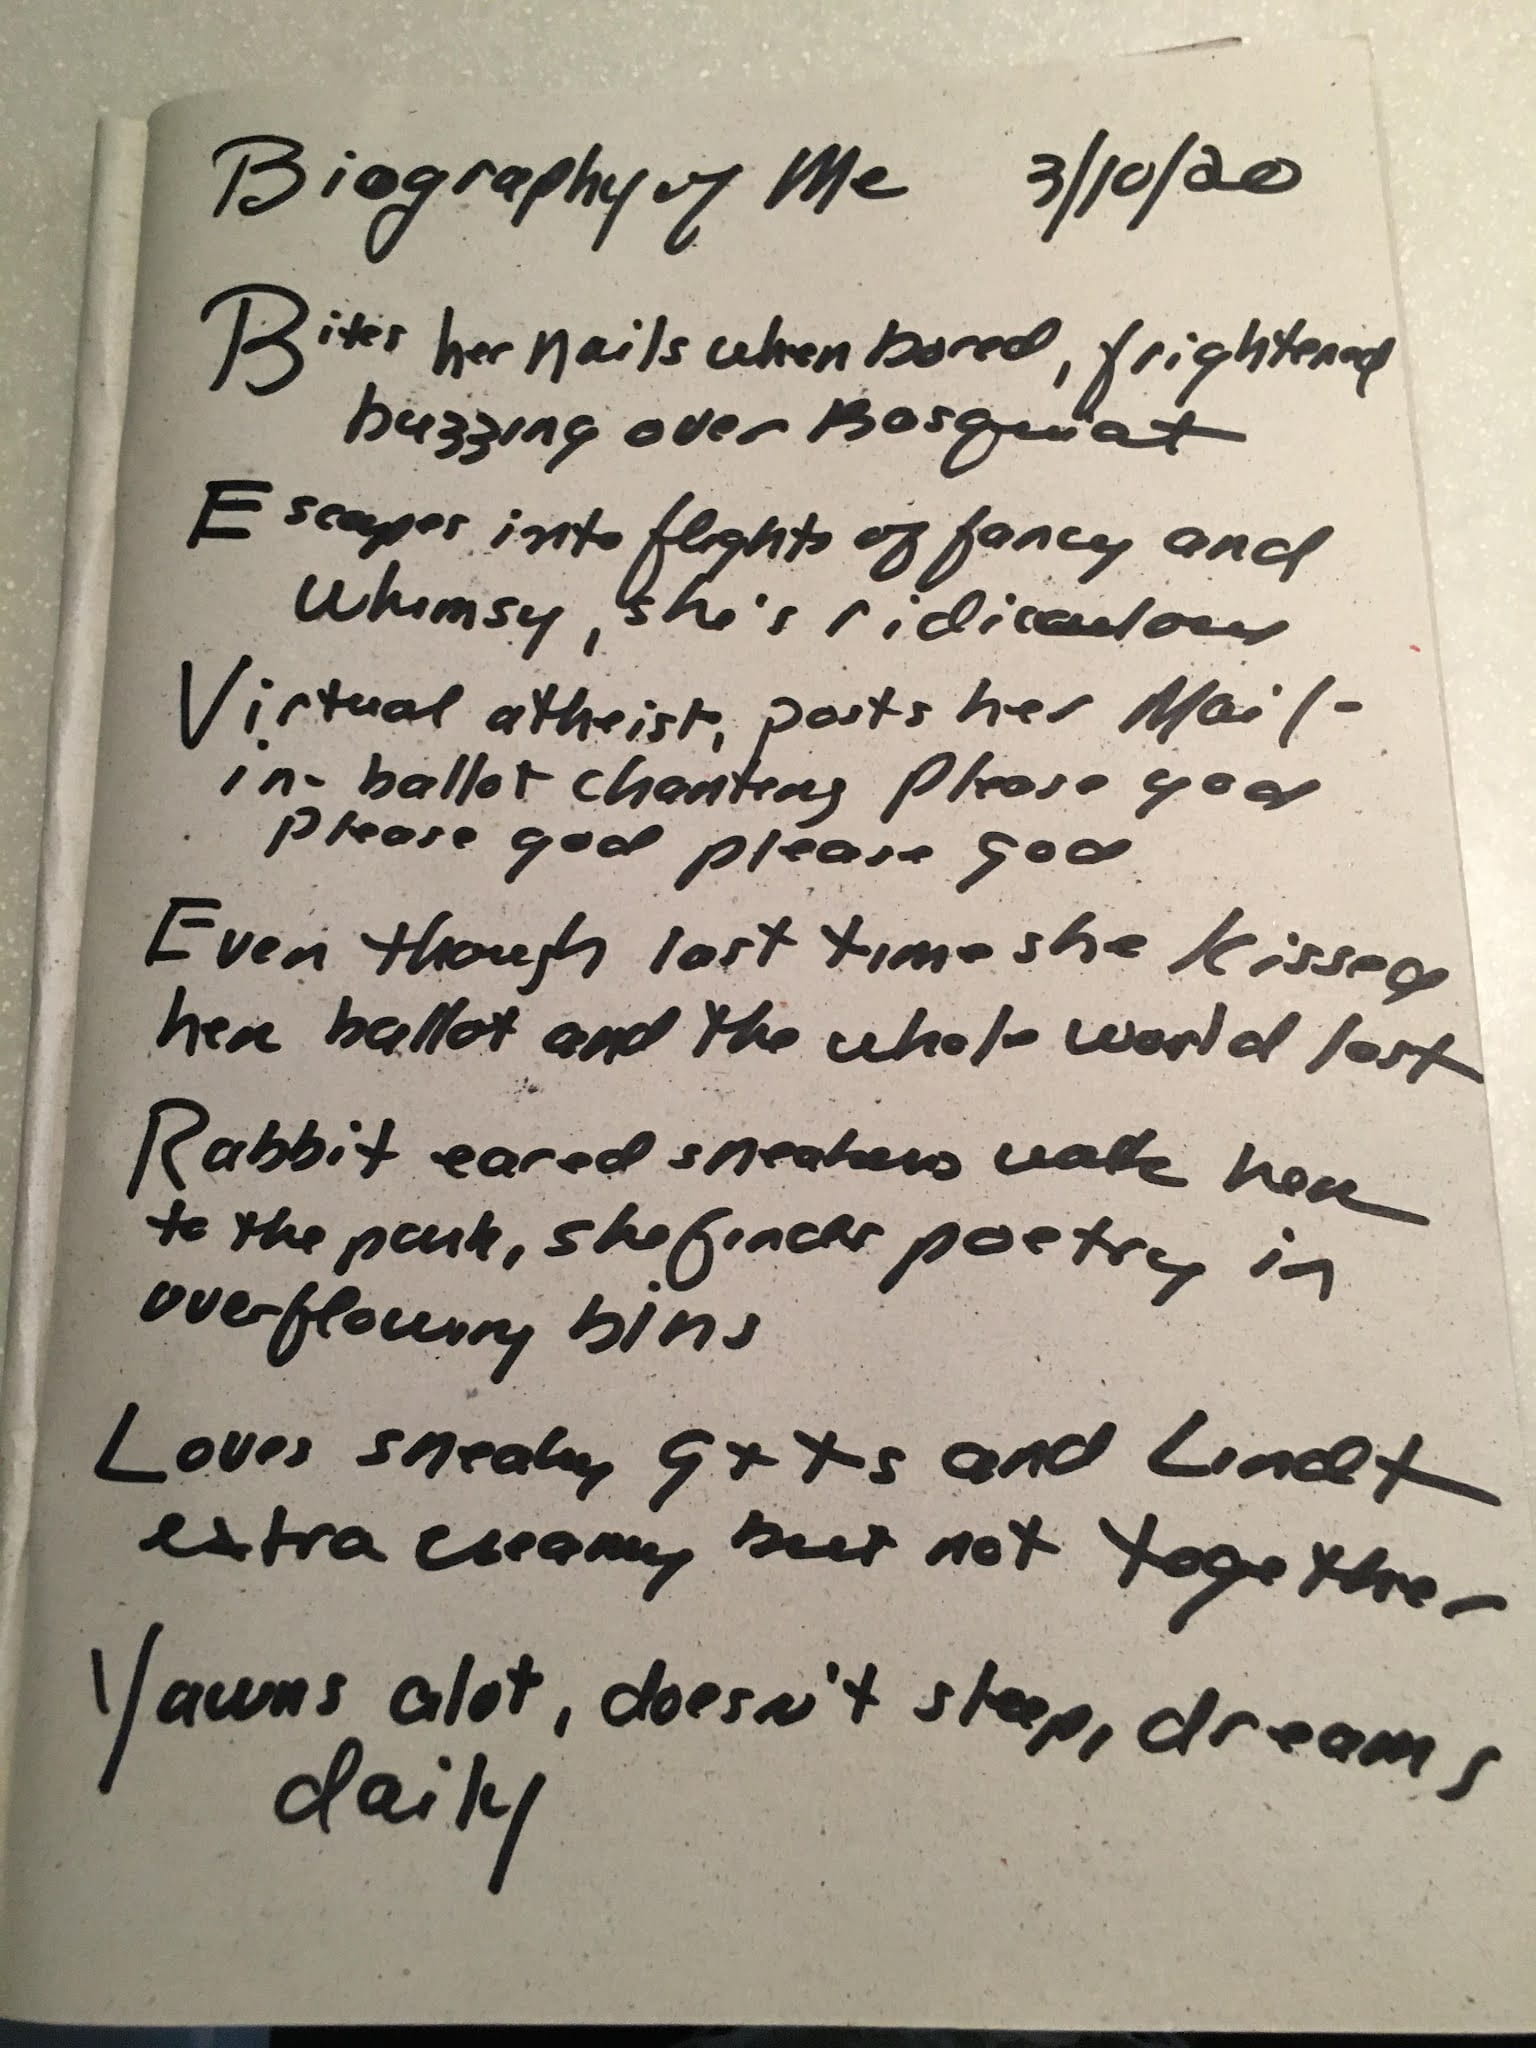 Biography of Me 3/10/20
Bites her nails when bored, frightened
buzzing over Bosquiat
Escapes into flights of fancy and
whimsy, she's ridiculous
Virtual atheist, posts her Mail-
in-ballot chanting Please god
please god please God
Even though last time she kissed
her ballot and the whole world lost
Rabbit eared sneakers walk her
to the park, she finds poetry in
overflowing bins
Loves sneaky G+Ts and Lindt
extra creamy but not together
Yawns alot, doesn't sleep, dreams
daily